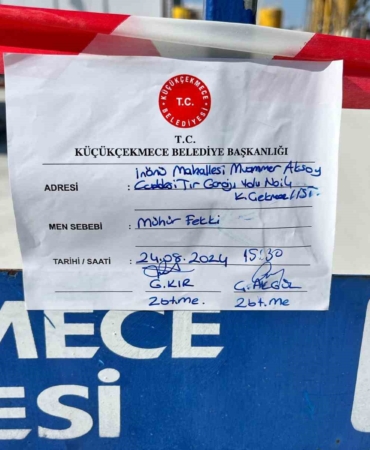 KÜÇÜKÇEKMECE
T.C.
BELEDİYESİ
T.C.
KÜÇÜKÇEKMECE BELEDİYE BAŞKANLIĞI
ADRESİ : İnönü Mahallesi Muammer Aksoy
Caddesi Tır Garajı Yolu No:4
K.Çekmece / İST.
MEN SEBEBİ : Mühür Fekki
TARİHİ / SAATİ : 24.08.2024 15:30
G.KIR G.AKGÜL
zbt.me. zbt.me
MECE
ESİ